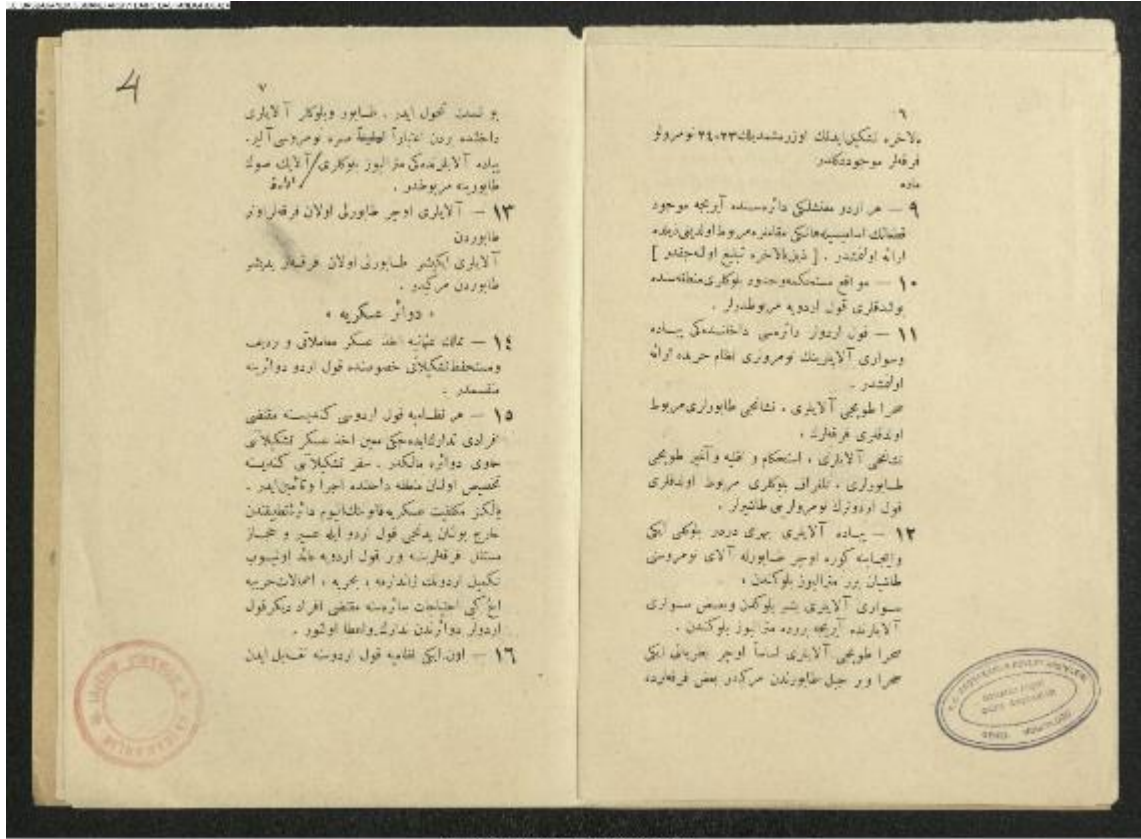 ٦
بالاخره تشكيل ايدلك اوزره ٢٣،٢٤ نومرولو
فرقه‌لر موجوددكلدر
ماده
٩ — هر اردو مفتشلكى دائره‌سنده آيريجه موجود
قطعاتك اساميسيله هانكى مقامه مربوط اولدينى ذيلده
ارائه اولنمشدر . [ ذيل بالاخره تبليغ اوله‌جقدر ]
١٠ — مواقع مستحكمه وحدود بلوكلرى منطقه‌سنده
بولندقلرى قول اردويه مربوطدرلر .
١١ — قول اردولر دائره‌سى داخلنده‌كى پياده
وسوارى آلايلرينك نومرولرى نظام حربده ارائه
اولنمشدر .
صحرا طوپجى آلايلرى ، نشانجى طابورلرى مربوط
اولدقلرى فرقه‌لرك ،
نشانجى آلايلرى ، استحكام و نقليه و آغير طوپجى
طابورلرى ، تلغراف بلوكلرى مربوط اولدقلرى
قول اردونك نومرولرينى طاشيرلر .
١٢ — پياده آلايلرى بهرى دردر بلوكلى ايكى
وايجابنه كوره اوچر طابورله آلاى نومروسنى
طاشيان برر متراليوز بلوكندن ،
سوارى آلايلرى بشر بلوكدن وبعض سوارى
آلايلرنده آيريجه برر متراليوز بلوكندن .
صحرا طوپجى آلايلرى اساساً اوچر بطريه‌لى ايكى
صحرا وبر جبل طابورندن مركبدر بعض فرقه‌لرده
4
٧
بو نسبت تحول ايدر . طابور وبلوكلر آلايلرى
داخلنده بردن اعتباراً صره نومروسى آلير.
پياده آلايلرنده‌كى مترالیوز بلوكلرى آلايك صوك
طابورينه مربوطدر .
١٣ — آلايلرى اوچر طابورلى اولان فرقه‌لر اونر
طابوردن
آلايلرى ايكيشر طابورلى اولان فرقه‌لر يديشر
طابوردن مركبدر .
« دوائر عسكريه »
١٤ — ممالك عثمانيه اخذ عسكر معاملاتى و رديف
ومستحفظ تشكيلاتى خصوصنده قول اردو دوائرينه
منقسمدر .
١٥ — هر نظاميه قول اردوسى كنديسنه مقتضى
افرادى تدارك ايده‌جك معين اخذ عسكر تشكيلاتنى
حاوى دوائره مالكدر . سفر تشكيلاتنى كنديسنه
تخصيص اولنان منطقه داخلنده اجرا وتأمين ايدر .
يالكز مكلفيت عسكريه قانوننك اليوم دائرۀ تطبيقندن
خارج بولنان يدنجى قول اردو ايله عسير و حجاز
مستقل فرقه‌لرينه وبر قول اردويه عائد اوليوب
تكميل اردونك ژاندارمه ، بحريه ، اعمالات حربيه
الخ كبى احتياجات سائره‌سنه مقتضى افراد ديكر قول
اردولر دوائرندن تدارك واعطا اولنور .
١٦ — اون ايكى نظاميه قول اردوسنه تقابل ايدن